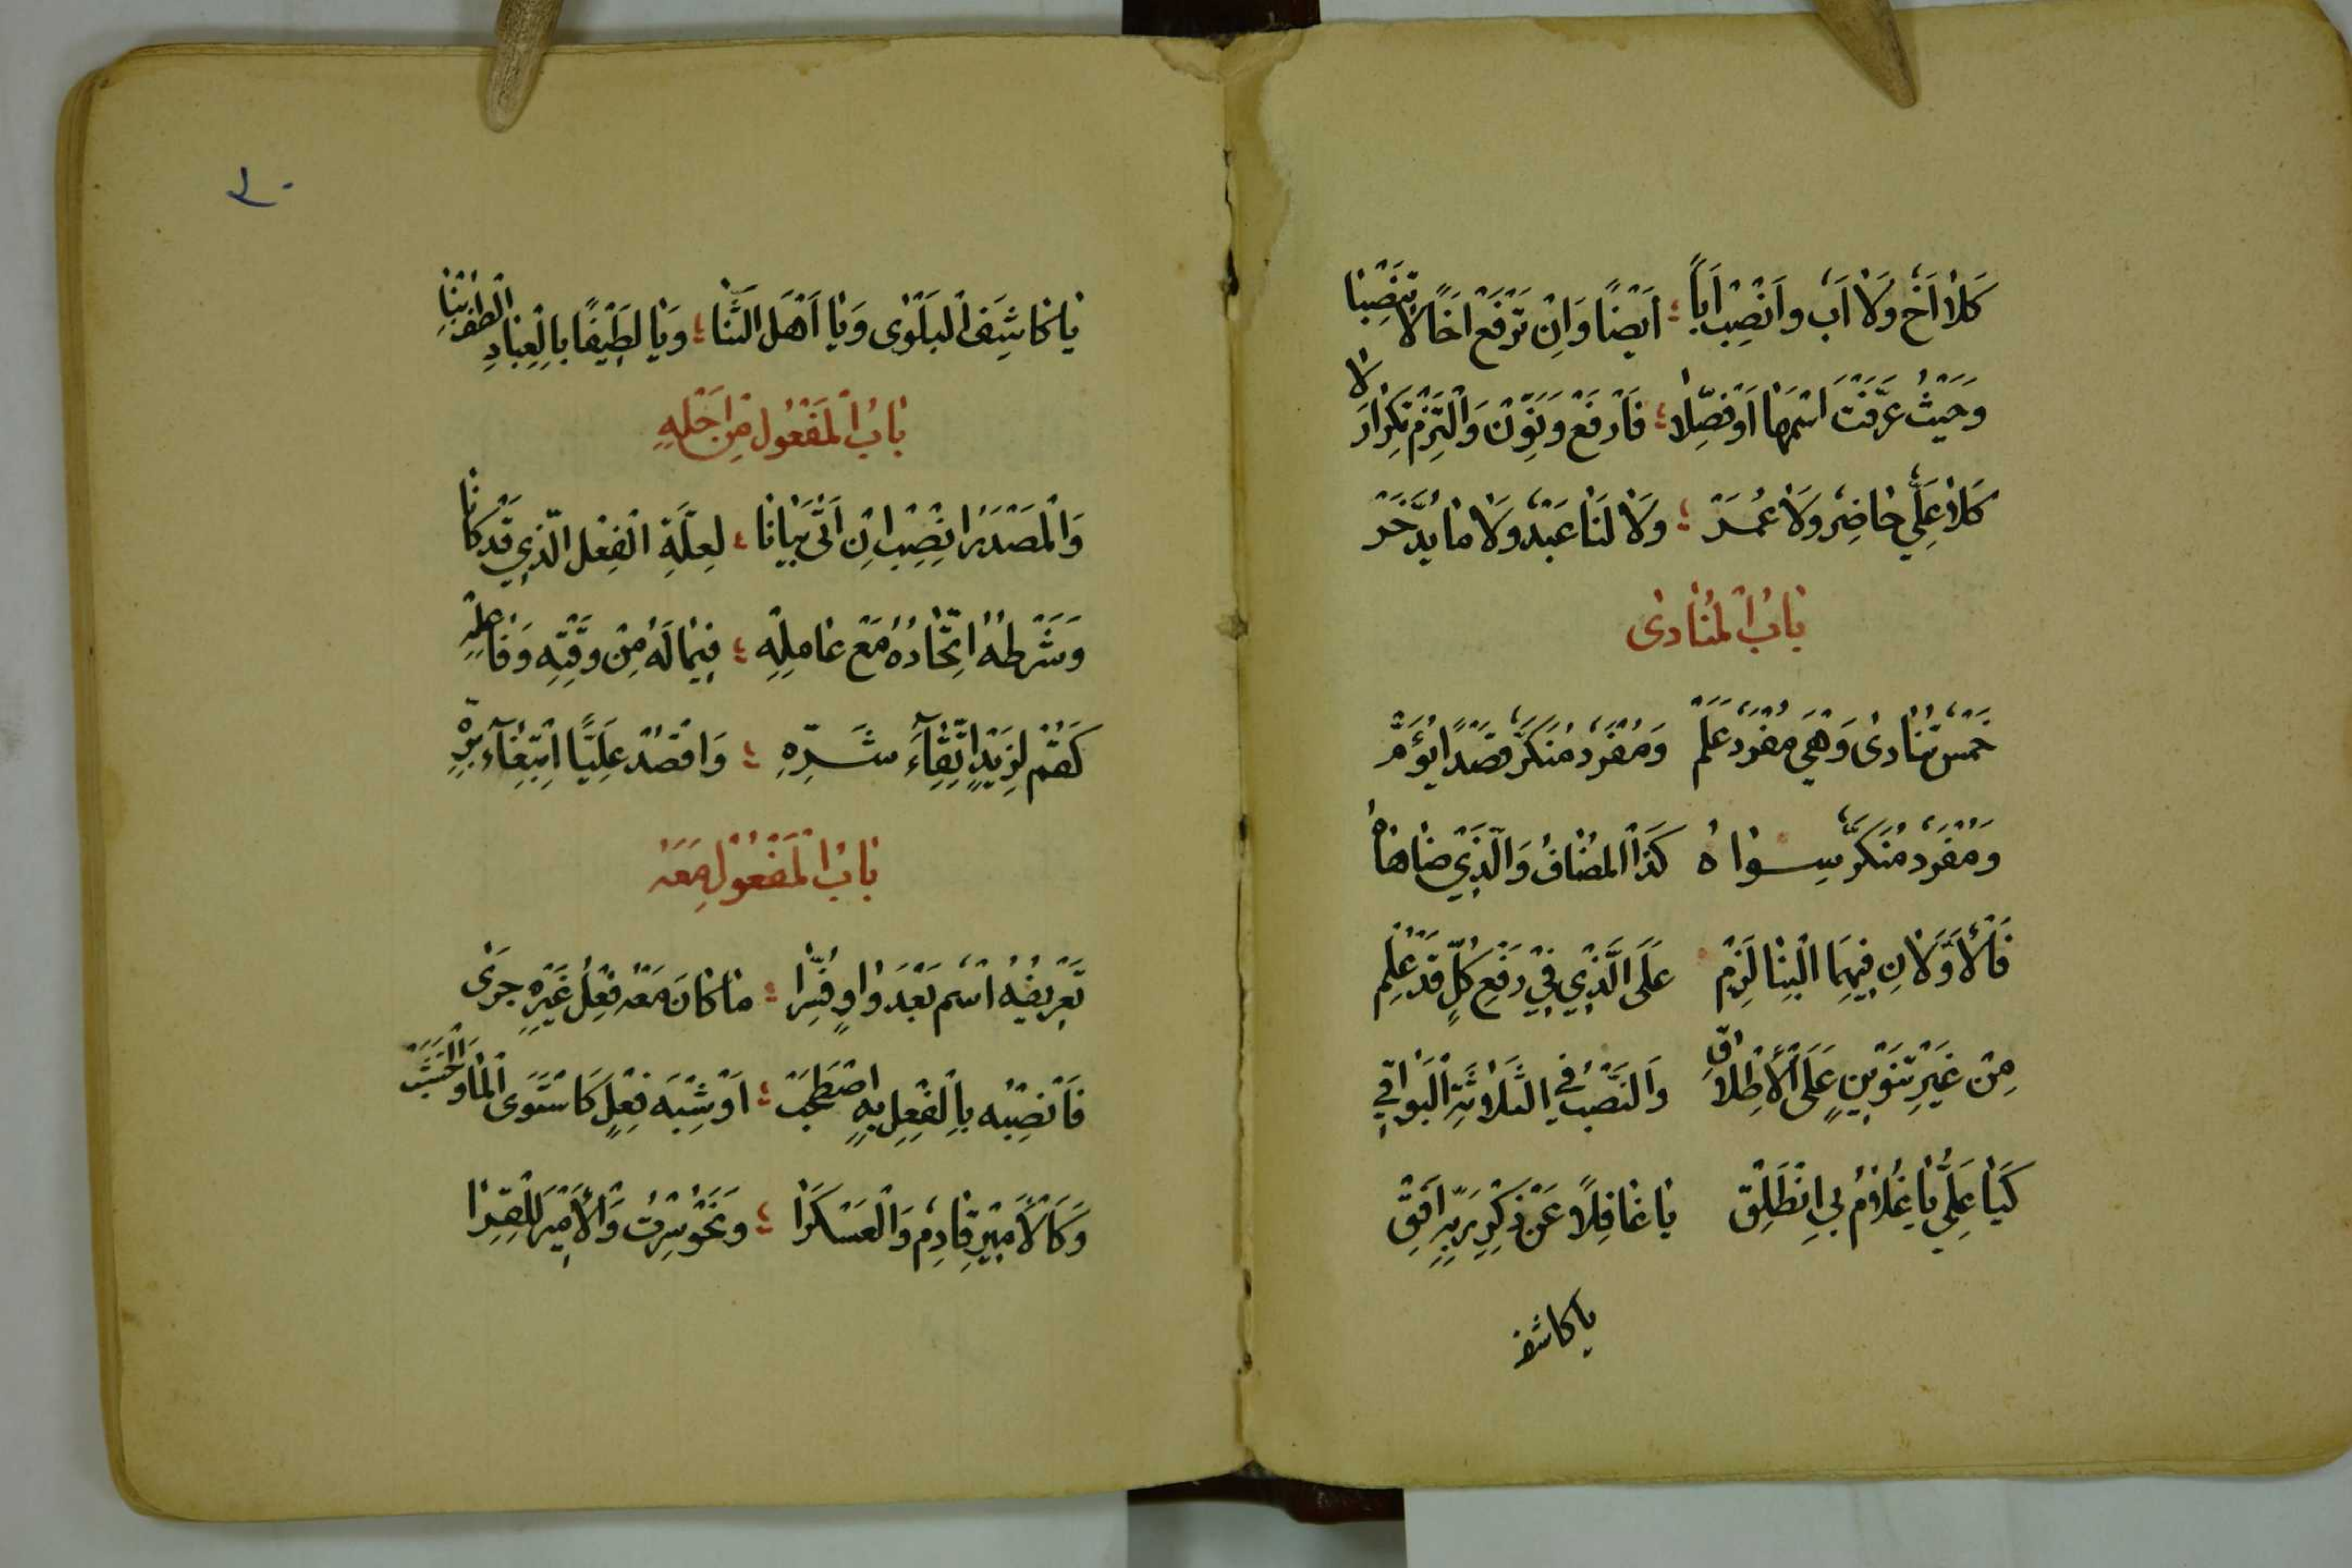 كَلَا أَخٌ وَلَا أَبٌ وَانْصِبْ أَبًا ؛ أَيْضًا وَإِنْ تَرْفَعْ أَخًا لَا تَنْصِبَا
وَحَيْثُ عَرَّفْتَ اسْمَهَا أَوْ فَصِّلَا ؛ فَارْفَعْ وَنَوِّنْ وَالْتَزِمْ تَكْرَارَ لَا
كَلَا عَلِيٌّ حَاضِرٌ وَلَا عُمَرْ ؛ وَلَا لَنَا عَبْدٌ وَلَا مَا يُدَّخَرْ
بَابُ الْمُنَادَى
خَمْسٌ تُنَادَى وَهْيَ مُفْرَدٌ عَلَمْ وَمُفْرَدٌ مُنَكَّرٌ قَصْدًا يُؤَمّْ
وَمُفْرَدٌ مُنَكَّرٌ سِوَاهُ كَذَا الْمُضَافُ وَالَّذِي ضَاهَاهُ
فَالْأَوَّلَانِ فِيهِمَا الْبِنَا لَزِمْ عَلَى الَّذِي فِي رَفْعِ كُلٍّ قَدْ عُلِمْ
مِنْ غَيْرِ تَنْوِينٍ عَلَى الْأِطْلَاقِ وَالنَّصْبُ فِي الثَّلَاثَةِ الْبَوَاقِي
كَيَا عَلِيُّ يَا غُلَامُ بِي انْطَلِقْ يَا غَافِلًا عَنْ ذِكْرِ رَبِّهِ أَفِقْ
يا كاشف
٣٠
يَا كَاشِفَ الْبَلْوَى وَيَا أَهْلَ الثَّنَا ؛ وَيَا لَطِيفًا بِالْعِبَادِ الْطُفْ بِنَا
بَابُ الْمَفْعُولِ مِنْ أَجْلِهِ
وَالْمَصْدَرَ انْصِبْ إِنْ أَتَى بَيَانَا ؛ لِعِلَّةِ الْفِعْلِ الَّذِي قَدْ كَانَا
وَشَرْطُهُ اتِّحَادُهُ مَعْ عَامِلِهِ ؛ فِيمَا لَهُ مِنْ وَقْتِهِ وَفَاعِلِهِ
كَقُمْ لِزَيْدٍ اتِّقَاءَ شَرِّهِ ؛ وَاقْصُدْ عَلِيًّا ابْتِغَاءَ بِرِّهِ
بَابُ الْمَفْعُولِ مَعَهُ
تَعْرِيفُهُ اسْمٌ بَعْدَ وَاوٍ فُسِّرَا ؛ مَا كَانَ مَعْهُ فِعْلُ غَيْرِهِ جَرَى
فَانْصِبْهُ بِالْفِعْلِ بِهِ اصْطَحَبْ ؛ أَوْ شِبْهِ فِعْلٍ كَاسْتَوَى الْمَا وَالْخَشَبْ
وَكَالْأَمِيرُ قَادِمٌ وَالْعَسْكَرَا ؛ وَنَحْوُ سِرْتُ وَالْأَمِيرَ لِلْقُرَا